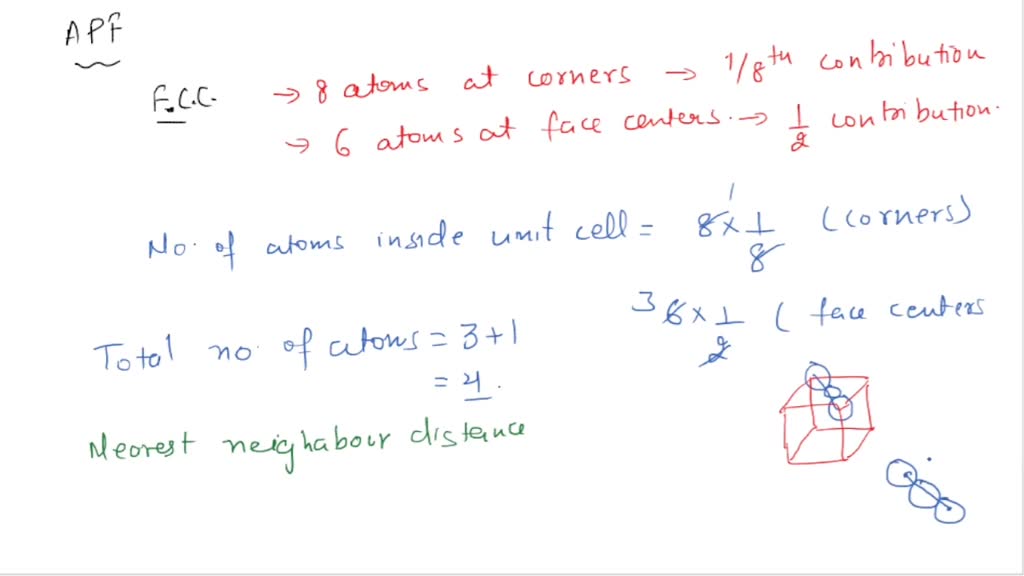 APF
F.C.C. → 8 atoms at corners → 1/8th contribution
→ 6 atoms at face centers. → 1/2 contribution.
No. of atoms inside unit cell = 8 × 1/8 (corners) 1
3 6 × 1/2 ( face centers
Total no. of atoms = 3+1
= 4.
Nearest neighabour distance